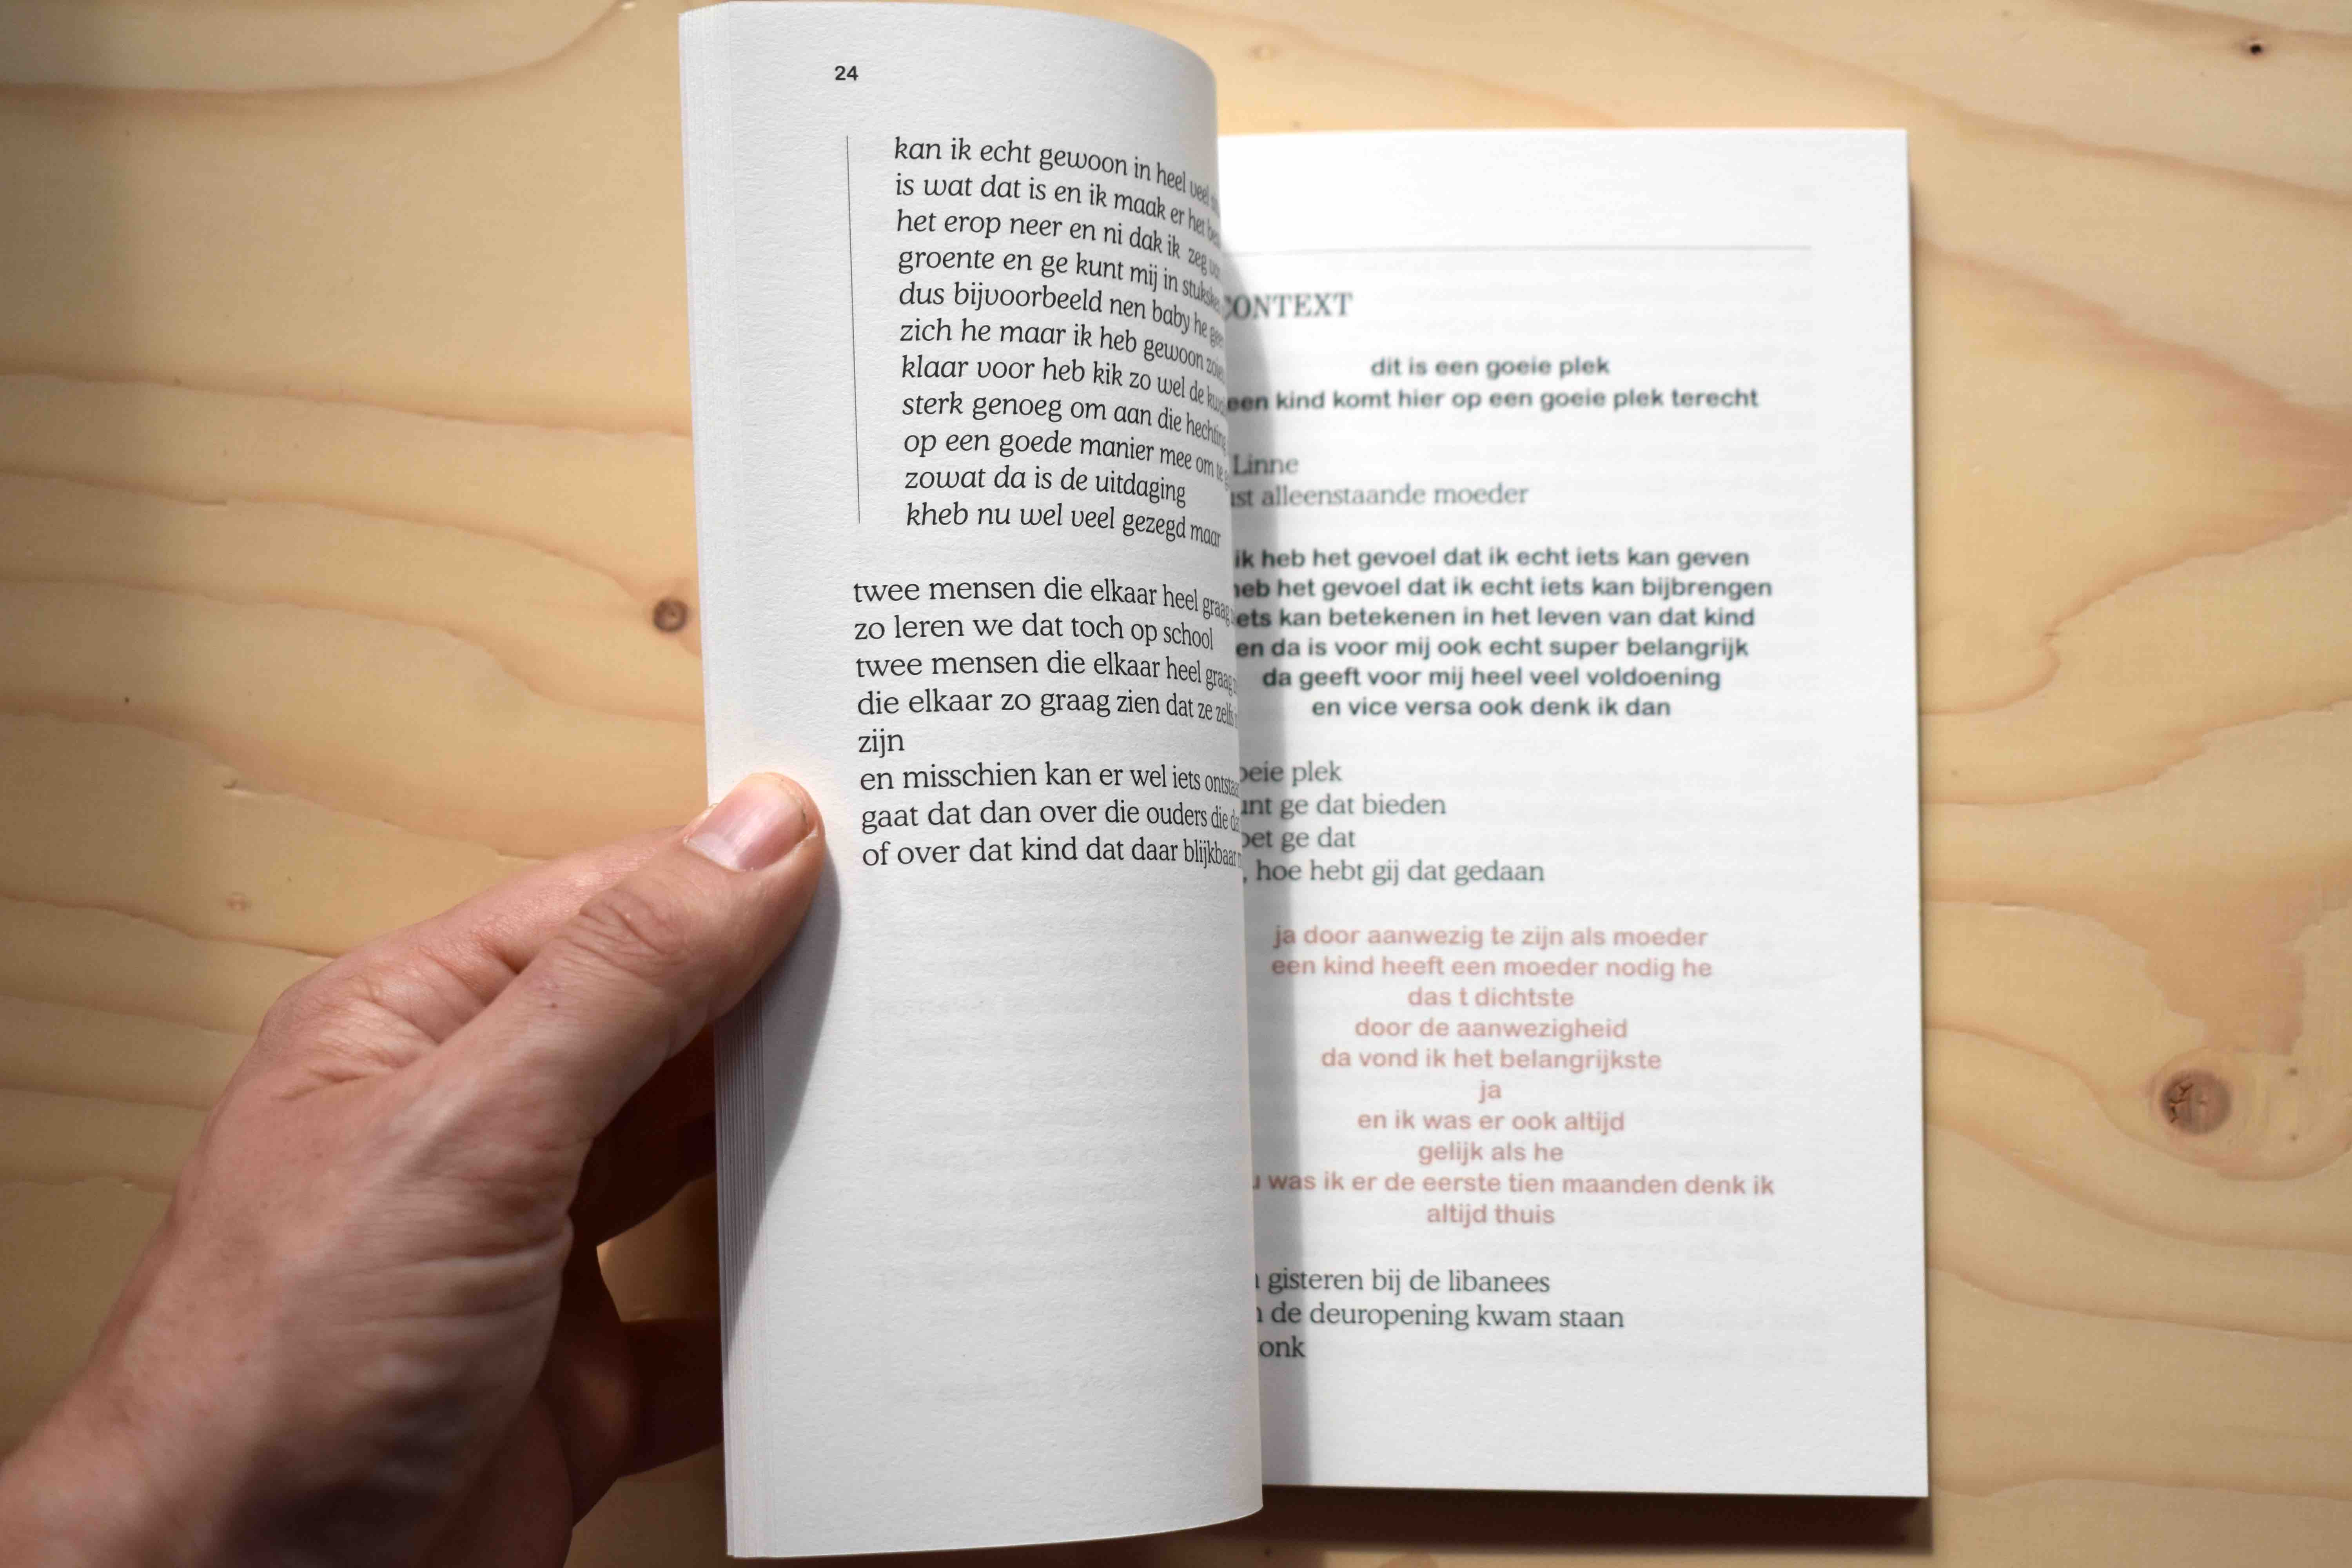 24
kan ik echt gewoon in heel veel
is wat dat is en ik maak er het
het erop neer en ni dak ik zeg
groente en ge kunt mij in
dus bijvoorbeeld nen baby he
zich he maar ik heb gewoon
klaar voor heb kik zo wel de
sterk genoeg om aan die hechting
op een goede manier mee om te
zowat da is de uitdaging
kheb nu wel veel gezegd maar
twee mensen die elkaar heel graag
zo leren we dat toch op school
twee mensen die elkaar heel graag
die elkaar zo graag zien dat ze zelfs
zijn
en misschien kan er wel iets
gaat dat dan over die ouders die
of over dat kind dat daar blijkbaar
CONTEXT
dit is een goeie plek
een kind komt hier op een goeie plek terecht
Linne
alleenstaande moeder
ik heb het gevoel dat ik echt iets kan geven
heb het gevoel dat ik echt iets kan bijbrengen
iets kan betekenen in het leven van dat kind
en da is voor mij ook echt super belangrijk
da geeft voor mij heel veel voldoening
en vice versa ook denk ik dan
plek
ge dat bieden
ge dat
, hoe hebt gij dat gedaan
ja door aanwezig te zijn als moeder
een kind heeft een moeder nodig he
das t dichtste
door de aanwezigheid
da vond ik het belangrijkste
ja
en ik was er ook altijd
gelijk als he
was ik er de eerste tien maanden denk ik
altijd thuis
gisteren bij de libanees
de deuropening kwam staan